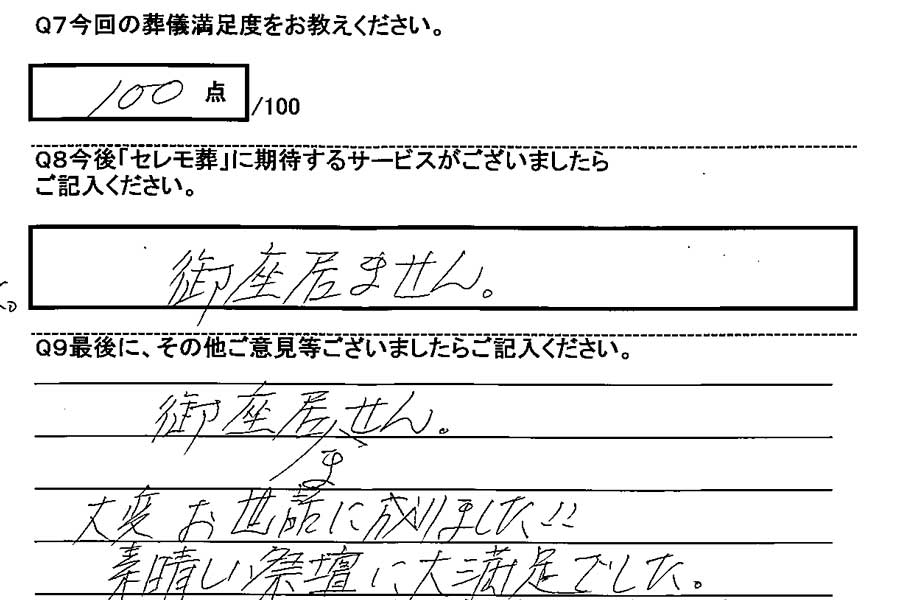 Q7今回の葬儀満足度をお教えください。
100点/100
Q8今後「セレモ葬」に期待するサービスがございましたら
ご記入ください。
御座居ません。
Q9最後に、その他ご意見等ございましたらご記入ください。
御座居せん。
ま
大変お世話に成りました!!
素晴しい祭壇に大満足でした。